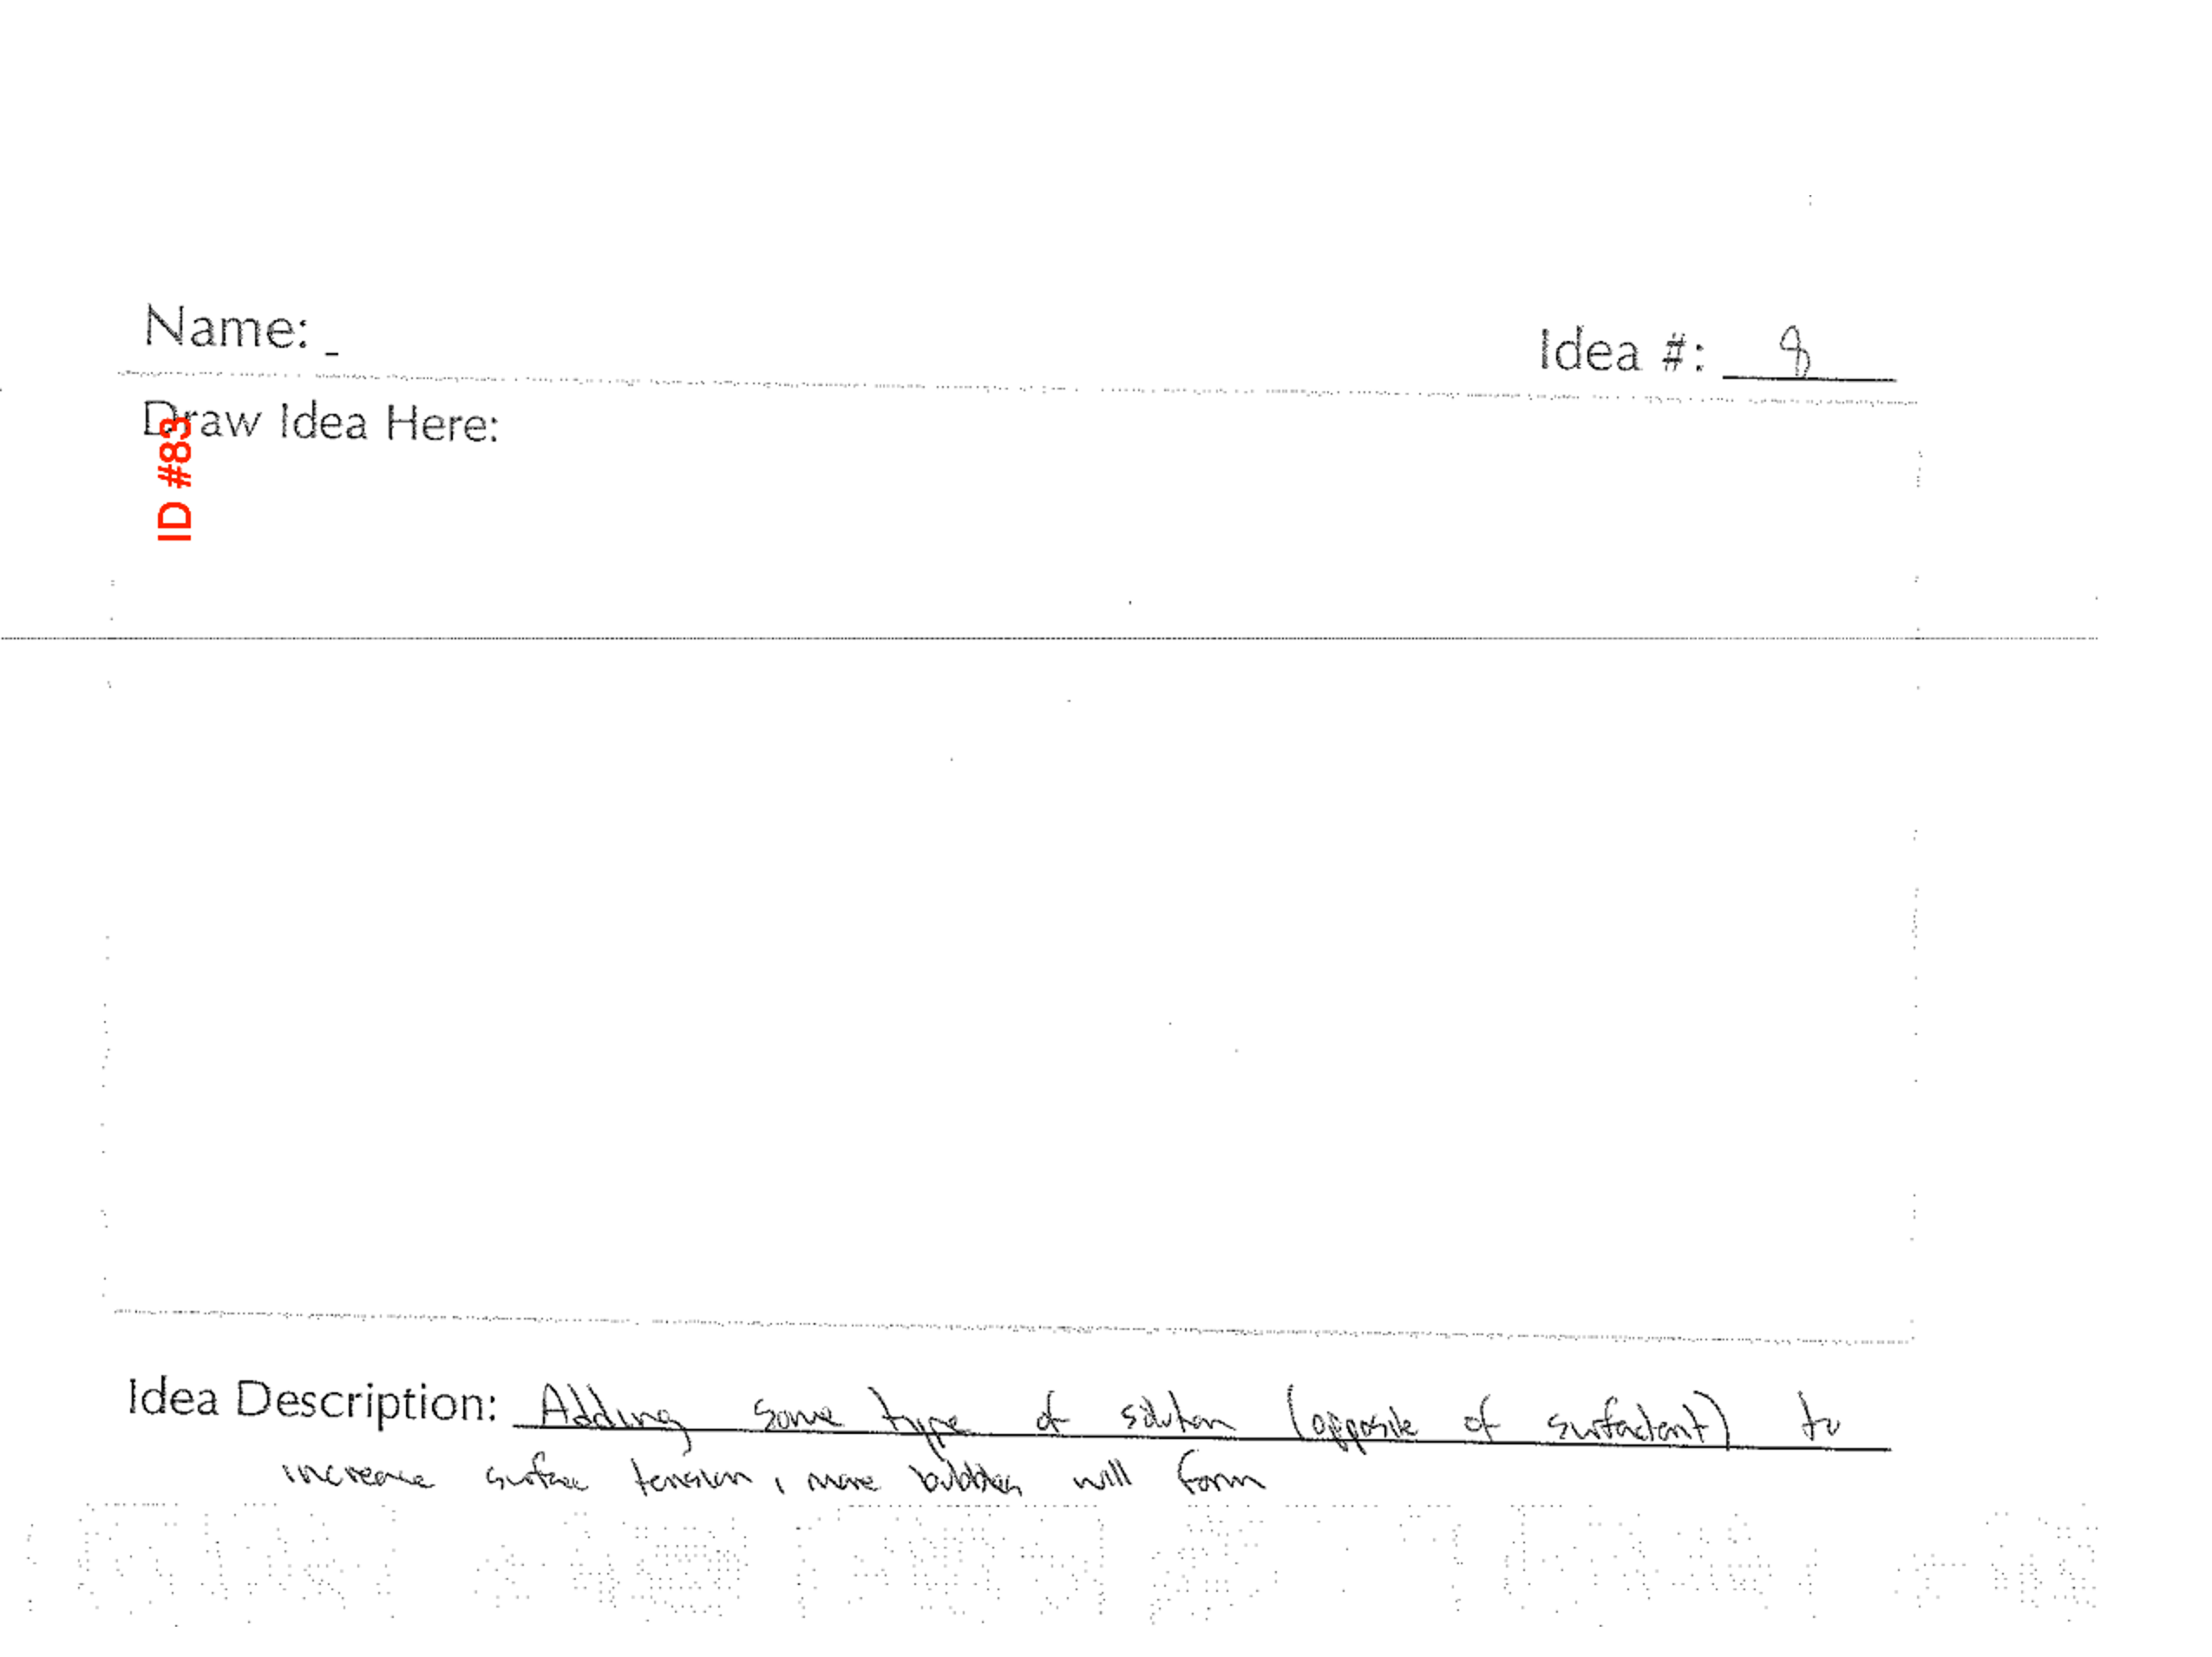 Name:
Idea #: 8
Draw Idea Here:
ID #83
Idea Description: Adding some type of solution (opposite of surfactant) to
increase surface tension, more bubbles will form